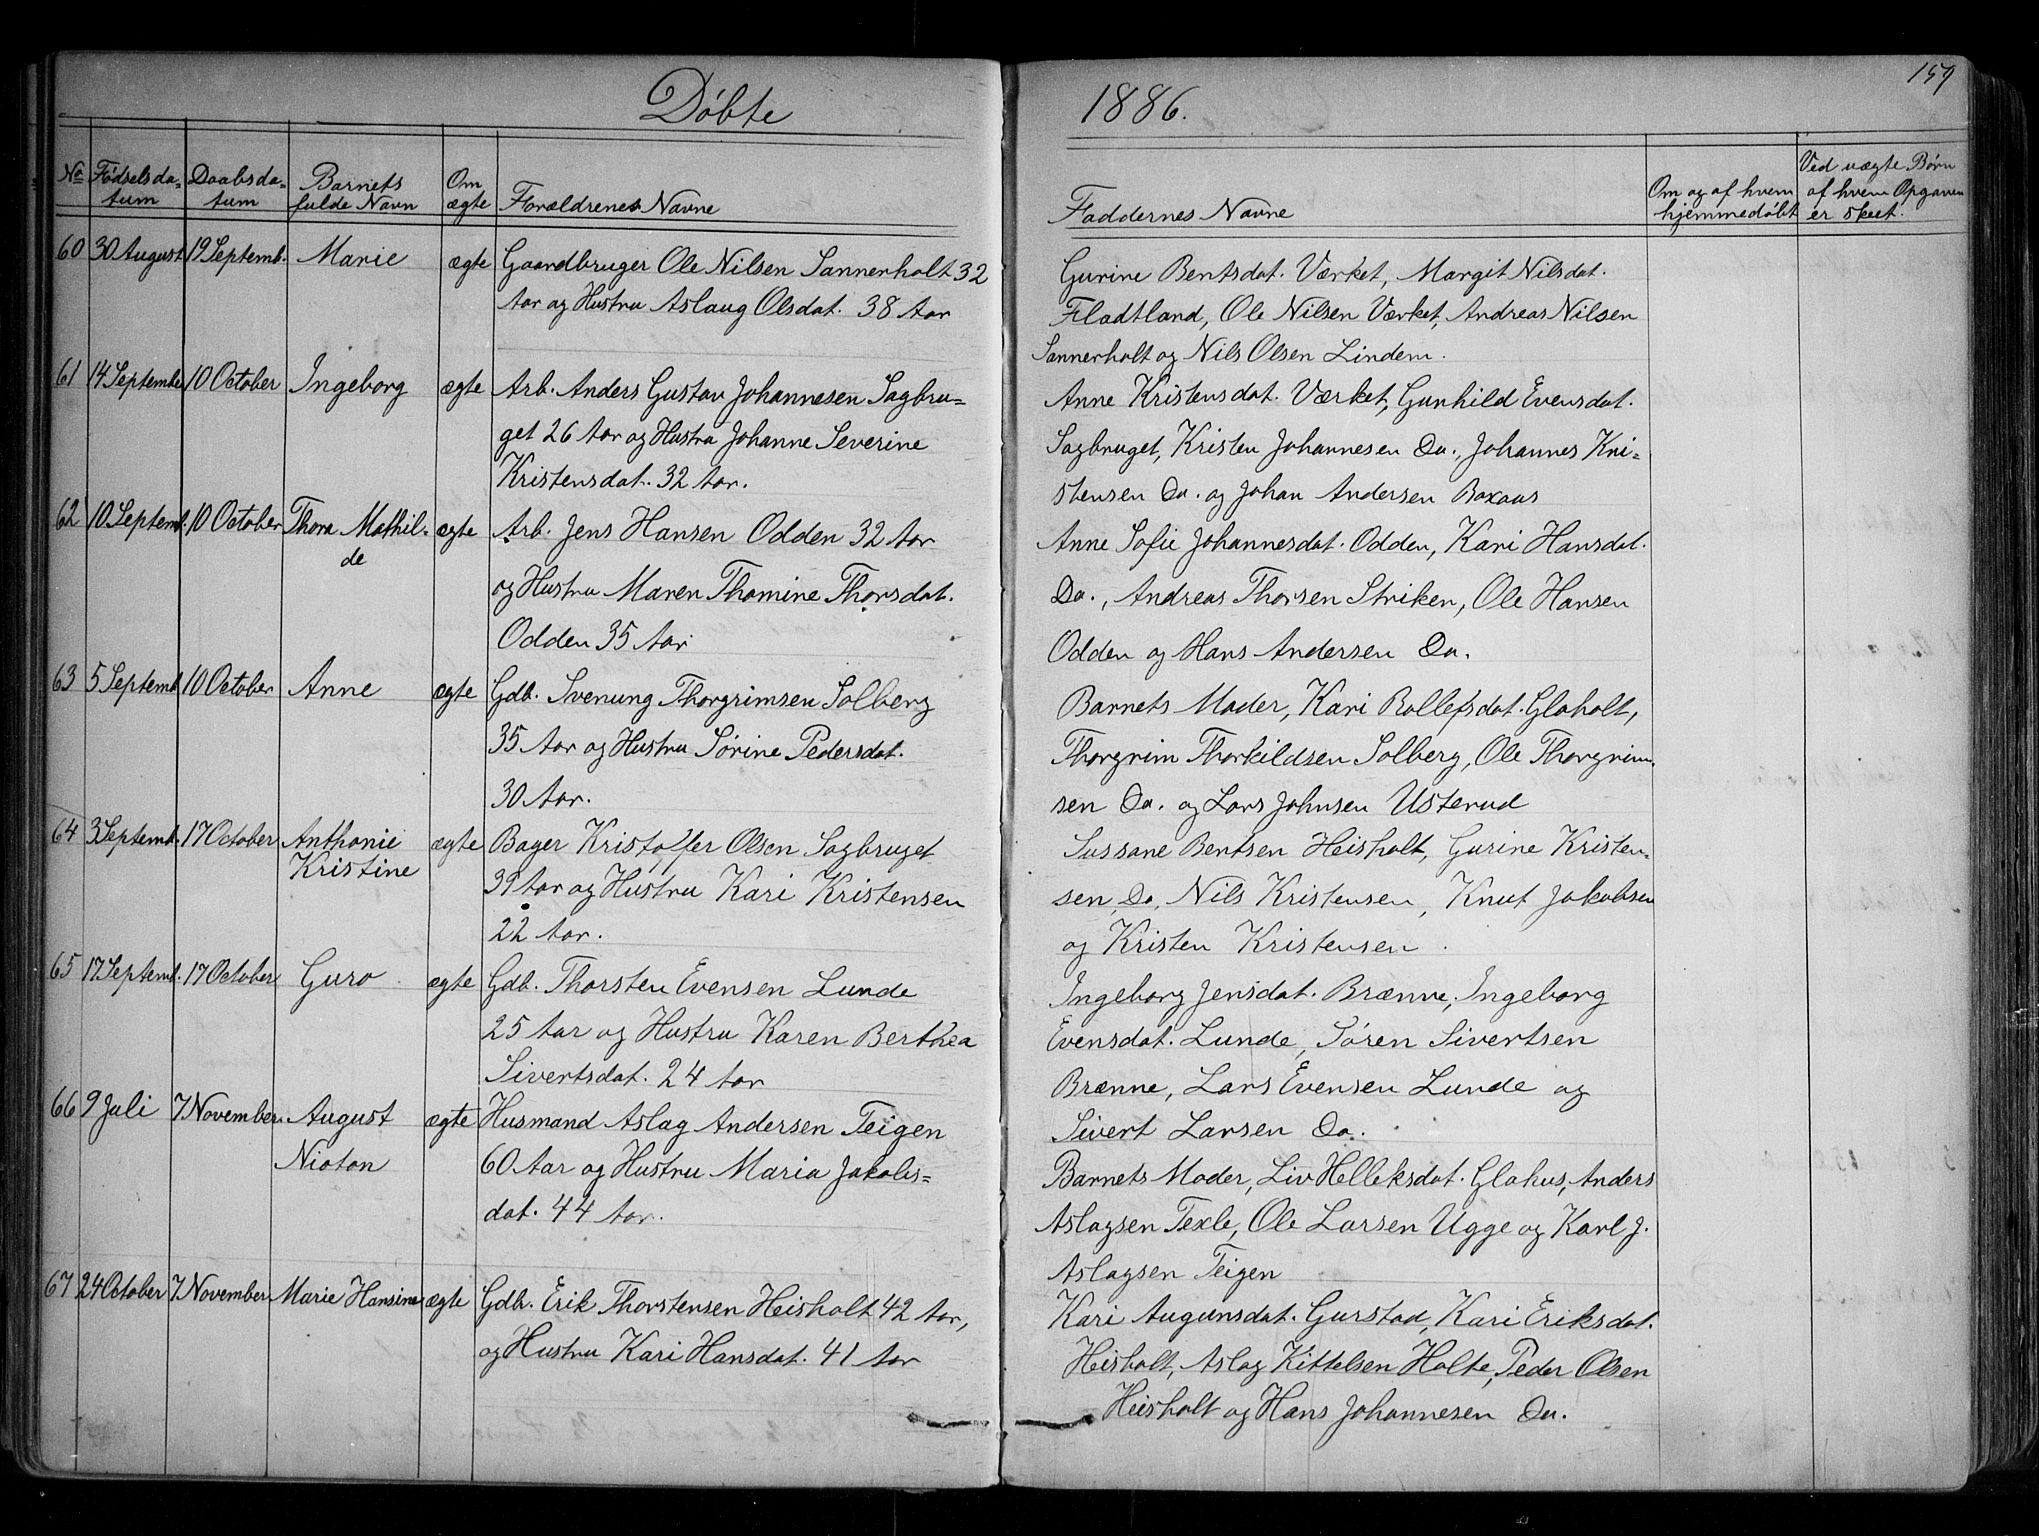 159
Døbte 1886.
No Fødselsda- Daabsda- Barnets Om Forældrenes Navne
tum tum fulde Navn ægte
Faddernes Navne Om og af hvem Ved uægte Børn
hjemmedøbt af hvem Opgaven
er skeet.
60 30 August 19 Septemb. Marie ægte Gaardbruger Ole Nilsen Sannerholt 32
Aar og Hustru Aslaug Olsdat. 38 Aar
Gurine Bentsdat. Værket, Margit Nilsdat.
Fladtland, Ole Nilsen Værket, Andreas Nilsen
Sannerholt og Nils Olsen Lindem.
61 14 Septembe 10 October Ingeborg ægte Arb. Anders Gustav Johannesen Sagbru=
get 26 Aar og Hustru Johanne Severine
Kristensdat. 32 Aar.
Anne Kristensdat. Værket, Gunhild Evensdat.
Sagbruget, Kristen Johannesen Do., Johannes Kri=
stensen Do. og Johan Andersen Boxaas
62 10 Septemb. 10 October Thora Mathil= ægte Arb. Jens Hansen Odden 32 Aar
de
og Hustru Maren Thomine Thorsdat.
Odden 35 Aar
Anne Sofie Johannesdat. Odden, Kari Hansdat.
Do., Andreas Thorsen Striken, Ole Hansen
Odden og Hans Andersen Do.
63 5 Septemb. 10 October Anne ægte Gdb. Svenung Thorgrimsen Solberg
35 Aar og Hustru Sørine Pedersdat.
30 Aar.
Barnets Moder, Kari Rollefsdat. Glaholt,
Thorgrim Thorkildsen Solberg, Ole Thorgrim
sen Do. og Lars Johnsen Usterud
64 3 Septemb. 17 October Anthonie ægte Bager Kristoffer Olsen Sagbruget
Kristine
39 Aar og Hustru Kari Kristensen
22 Aar.
Sussane Bentsen Heisholt, Gurine Kristen-
sen, Do, Nils Kristensen, Knut Jakobsen
og Kristen Kristensen.
65 17 Septemb. 17 October Guro ægte Gdb. Thorsten Evensen Lunde
25 Aar og Hustru Karen Berthea
Sivertsdat. 24 Aar
Ingeborg Jensdat. Brænne, Ingeborg
Evensdat. Lunde, Søren Sivertsen
Brænne, Lars Evensen Lunde og
Sivert Larsen Do.
66 9 Juli 7 November August ægte Husmand Aslag Andersen Teigen
Nioton 60 Aar og Hustru Maria Jakobs=
dat. 44 Aar.
Barnets Moder, Liv Helleksdat. Glahus, Anders
Aslagsen Texle, Ole Larsen Ugge og Karl J.
Aslagsen Teigen
67 24 October 7 November Marie Hansine ægte Gdb. Erik Thorstensen Heisholt 42 Aar,
og Hustru Kari Hansdat. 41 Aar
Kari Augunsdat. Gurstad, Kari Eriksdat.
Heisholt, Aslag Kittelsen Holte, Peder Olsen
Heisholt og Hans Johannesen Do.